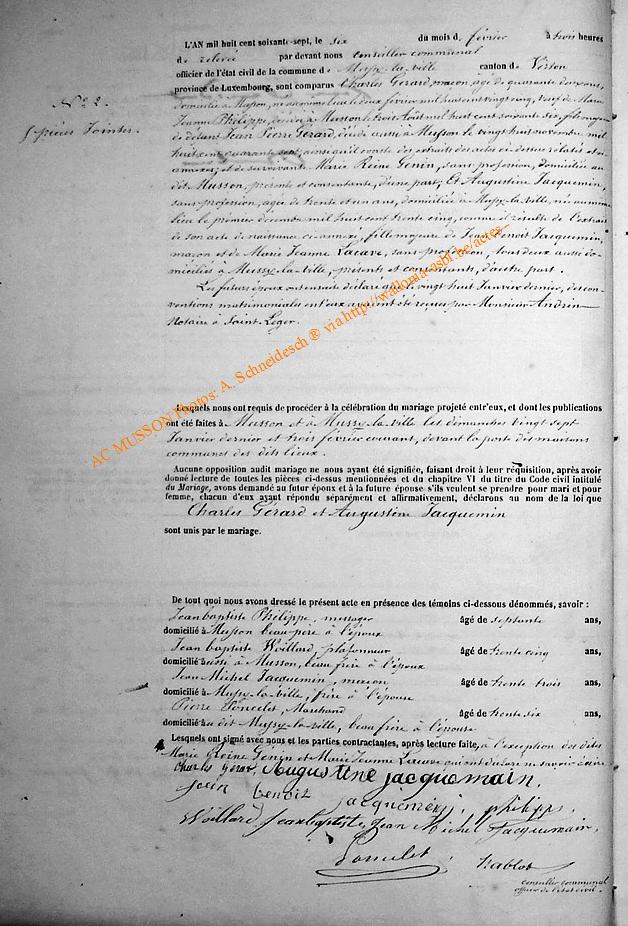 L'AN mil huit cent soixante-sept, le six du mois de février à trois heures
de relevée par devant nous conseiller communal
officier de l'état civil de la commune de Mussy-la-ville canton de Virton
province de Luxembourg, sont comparus Charles Gérard, maçon, âgé de quarante deux ans,
domicilié à Musson, né au même lieu le deux février mil huit cent vingt cinq, veuf de Marie
Jeanne Philippe, décédée à Musson le trois Août mil huit cent soixante six, fils majeur
de défunt Jean Pierre Gérard, décédé aussi à Musson le vingt huit novembre mil
huit cent quarante sept, ainsi qu'il conste des extraits des actes ci-dessus relatés et ci-
annexés; et de survivante Marie Reine Génin, sans profession, domiciliée au
dit Musson, présente et consentante, d'une part; Et Augustine Jacquemin,
sans profession, agée de trente et un ans, domiciliée à Mussy-la-ville, née au même
lieu le premier décembre mil huit cent trente cinq, comme il résulte de l'extrait
de son acte de naissance ci-annexé, fille majeure de Jean Benoit Jacquemin,
maçon et de Marie Jeanne Lacave, sans profession, tous deux aussi do-
miciliés à Mussy-la-ville, présents et consentants, d'autre part.
Les futurs époux ont ensuite déclaré que le vingt huit Janvier dernier, des con-
ventions matrimoniales entr'eux avaient été reçues par Monsieur Andrin
Notaire à Saint-Léger.
N° 2.
pièces Jointes.
Lesquels nous ont requis de procéder à la célébration du mariage projeté entr'eux, et dont les publications
ont été faites à Musson et à Mussy-la-ville les dimanches vingt sept
Janvier dernier et trois février courant, devant la porte des maisons
communes des dits lieux.
Aucune opposition audit mariage ne nous ayant été signifiée, faisant droit à leur réquisition, après avoir
donné lecture de toutes les pièces ci-dessus mentionnées et du chapitre VI du titre du Code civil intitulé
du Mariage, avons demandé au futur époux et à la future épouse s'ils veulent se prendre pour mari et pour
femme, chacun d'eux ayant répondu séparément et affirmativement, déclarons au nom de la loi que
Charles Gérard et Augustine Jacquemin
sont unis par le mariage.
De tout quoi nous avons dressé le présent acte en présence des témoins ci-dessous dénommés, savoir :
Jean baptiste Philippe, messager âgé de septante ans,
domicilié à Musson beau-père à l'époux
Jean baptiste Woillard, plafonneur âgé de trente cinq ans,
domicilié aussi à Musson, beau frère à l'époux
Jean Michel Jacquemin, maçon âgé de trente trois ans,
domicilié à Mussy-la-ville, frère à l'épouse
Pierre Poncelet, Marchand âgé de trente six ans,
domicilié au dit Mussy-la-ville, beau frère à l'épouse
Lesquels ont signé avec nous et les parties contractantes, après lecture faite, à l'exception des dites
Marie Reine Génin et Marie Jeanne Lacave qui ont déclaré ne savoir écrire
Charles Gérard, Augustine jacquemain
jean benoit jacquemin, philippe
Woillard Jean baptiste, Jean Michel Jacquemain,
Poncelet, Nablot
conseiller communal
officier de l'état civil.
AC MUSSON Photos: A. Schneidesch ® via http://wallonia-asbl.be/actes...